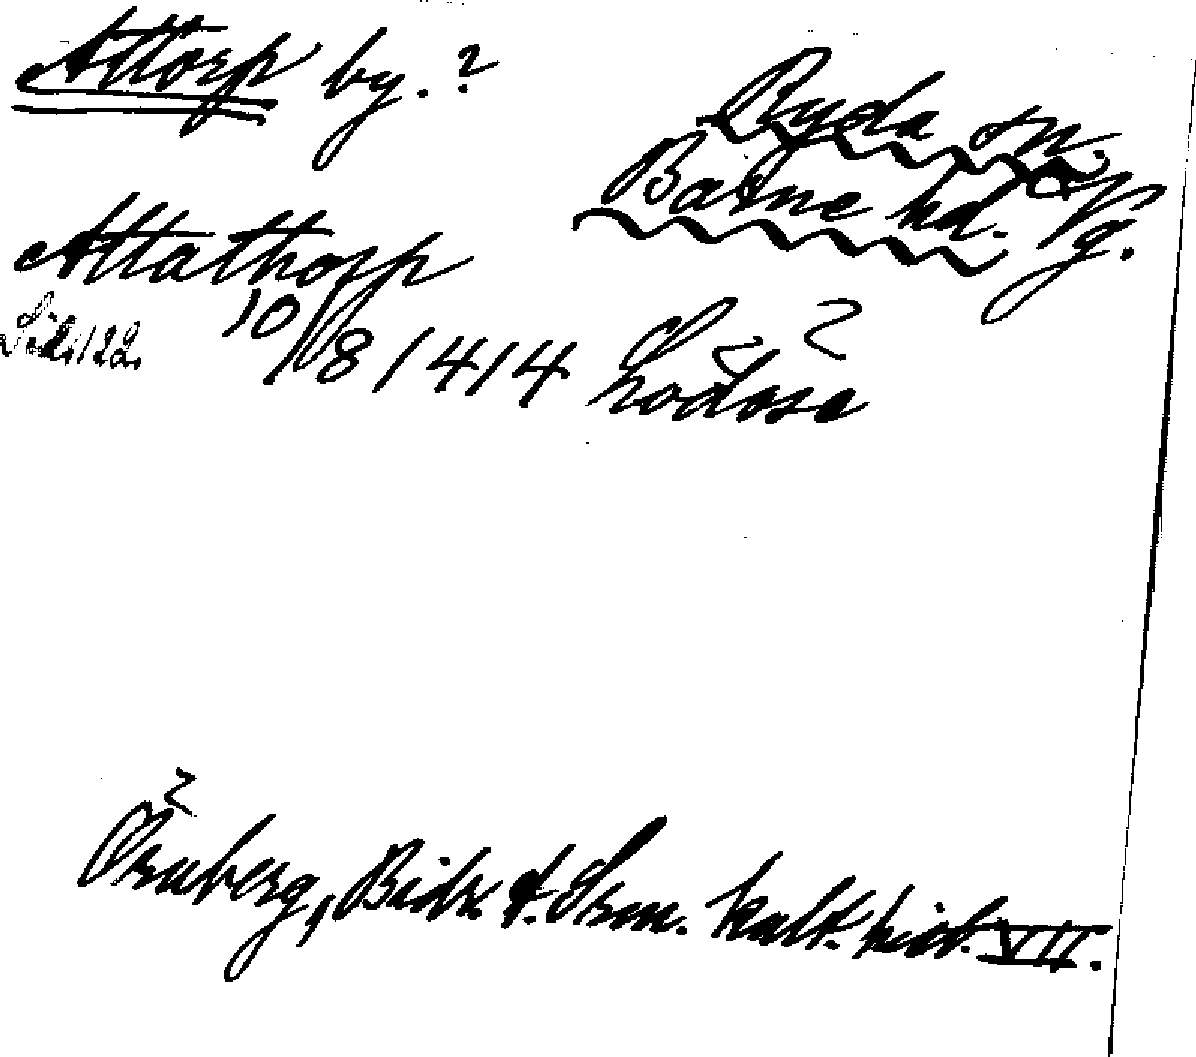 Attorp by.?
Ryda sn.
Barne hd. Vg.
Attathorp
Sid. 122.
10/8 1414 Lödöse ?
Örnberg, Bidr. t. Srm. kult. hist. VII.